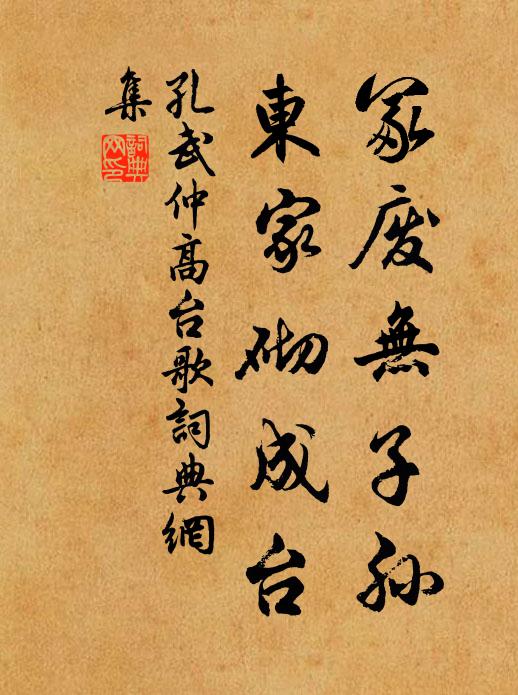 冢废無子孫
東家砌成台
孔武仲高台歌詞典網
集
詞典网印